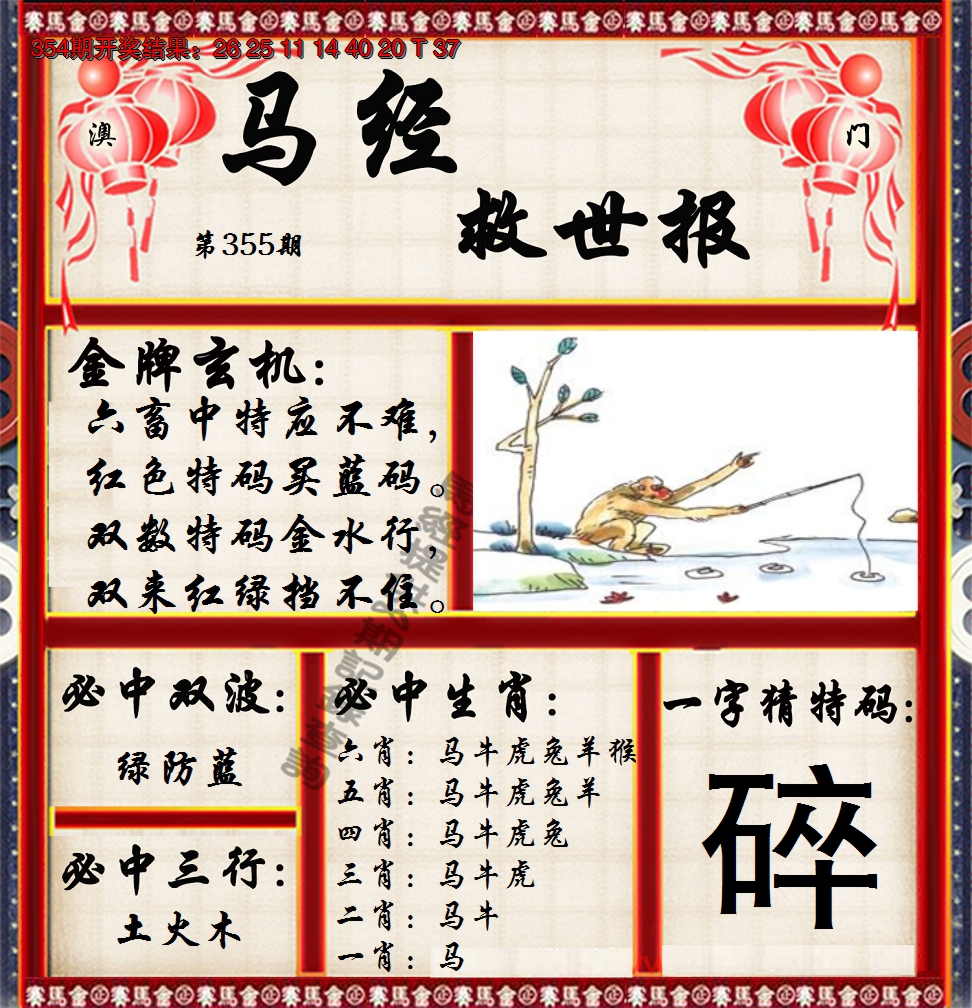 赛馬會赛馬會赛馬會赛馬會赛馬會赛馬會赛馬會
354期开奖结果：26 25 11 14 40 20 T 37
澳
门
马经
救世报
第355期
金牌玄机：
六畜中特应不难，
红色特码买蓝码。
双数特码金水行，
双来红绿挡不住。
必中双波：
绿防蓝
必中三行：
土火木
必中生肖：
六肖：马牛虎兔羊猴
五肖：马牛虎兔羊
四肖：马牛虎兔
三肖：马牛虎
二肖：马牛
一肖：马
一字猜特码：
碎